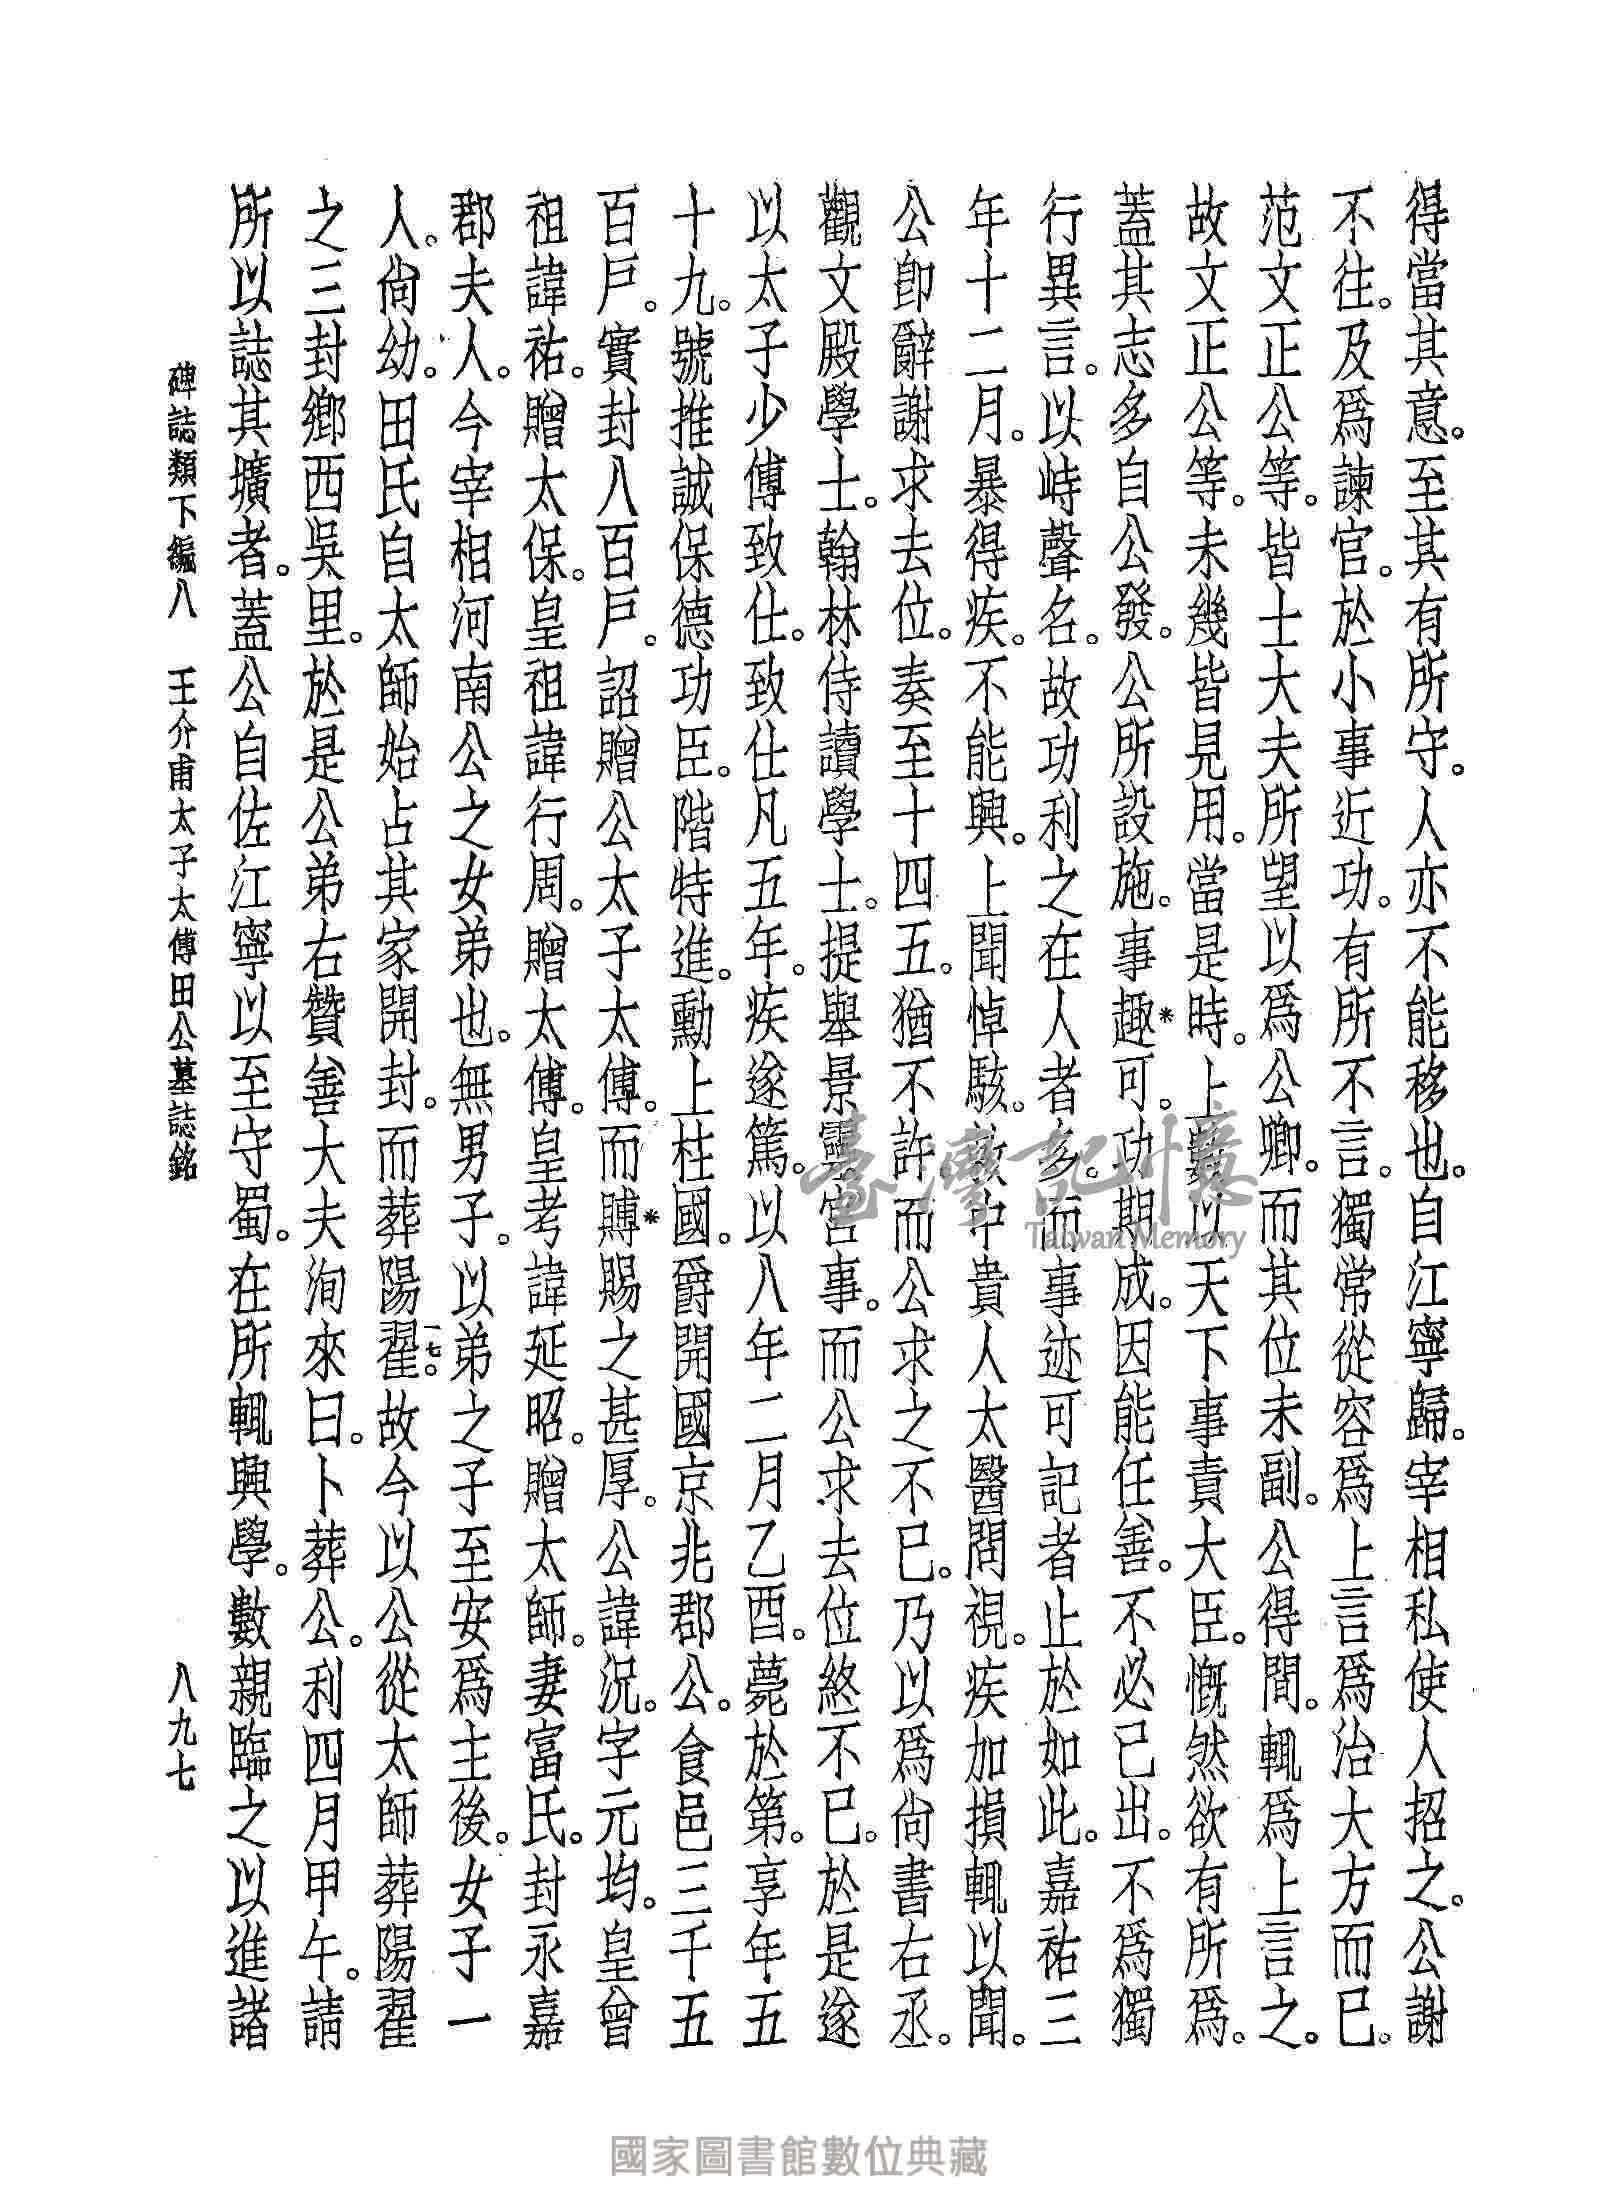 得當其意。至其有所守。人亦不能移也。自江寧歸。宰相私使人招之。公謝
不往。及爲諫官。於小事近功。有所不言。獨常從容爲上言爲治大方而已。
范文正公等。皆士大夫所望以爲公卿。而其位未副。公得間。輒爲上言之。
故文正公等。未幾皆見用。當是時。上數以天下事責大臣。慨然欲有所爲。
蓋其志多自公發。公所設施。事趣*可。功期成。因能任善。不必己出。不爲獨
行異言。以峙聲名。故功利之在人者多。而事迹可記者止於如此。嘉祐三
年十二月。暴得疾。不能興。上聞悼駭。敕中貴人太醫問視。疾加損輒以聞。
公卽辭謝求去位。奏至十四五。猶不許。而公求之不已。乃以爲尙書右丞。
觀文殿學士。翰林侍讀學士。提舉景靈宮事。而公求去位終不已。於是遂
以太子少傅致仕。致仕凡五年。疾遂篤。以八年二月乙酉。薨於第。享年五
十九。號推誠保德功臣。階特進。勳上柱國。爵開國京兆郡公。食邑三千五
百戶。實封八百戶。詔贈公太子太傅。而賻*賜之甚厚。公諱況。字元均。皇曾
祖諱祐。贈太保。皇祖諱行周。贈太傅。皇考諱延昭。贈太師。妻富氏。封永嘉
郡夫人。今宰相河南公之女弟也。無男子。以弟之子至安爲主後。女子一
人。尙幼。田氏自太師始占其家開封。而葬陽翟一七。故今以公從太師葬陽翟
之三封鄉西吳里。於是公弟右贊善大夫洵來曰。卜葬公。利四月甲午。請
所以誌其壙者。蓋公自佐江寧以至守蜀。在所輒興學。數親臨之以進諸
碑誌類下編八　王介甫太子太傅田公墓誌銘
八九七
臺灣記憶
Taiwan Memory
國家圖書館數位典藏